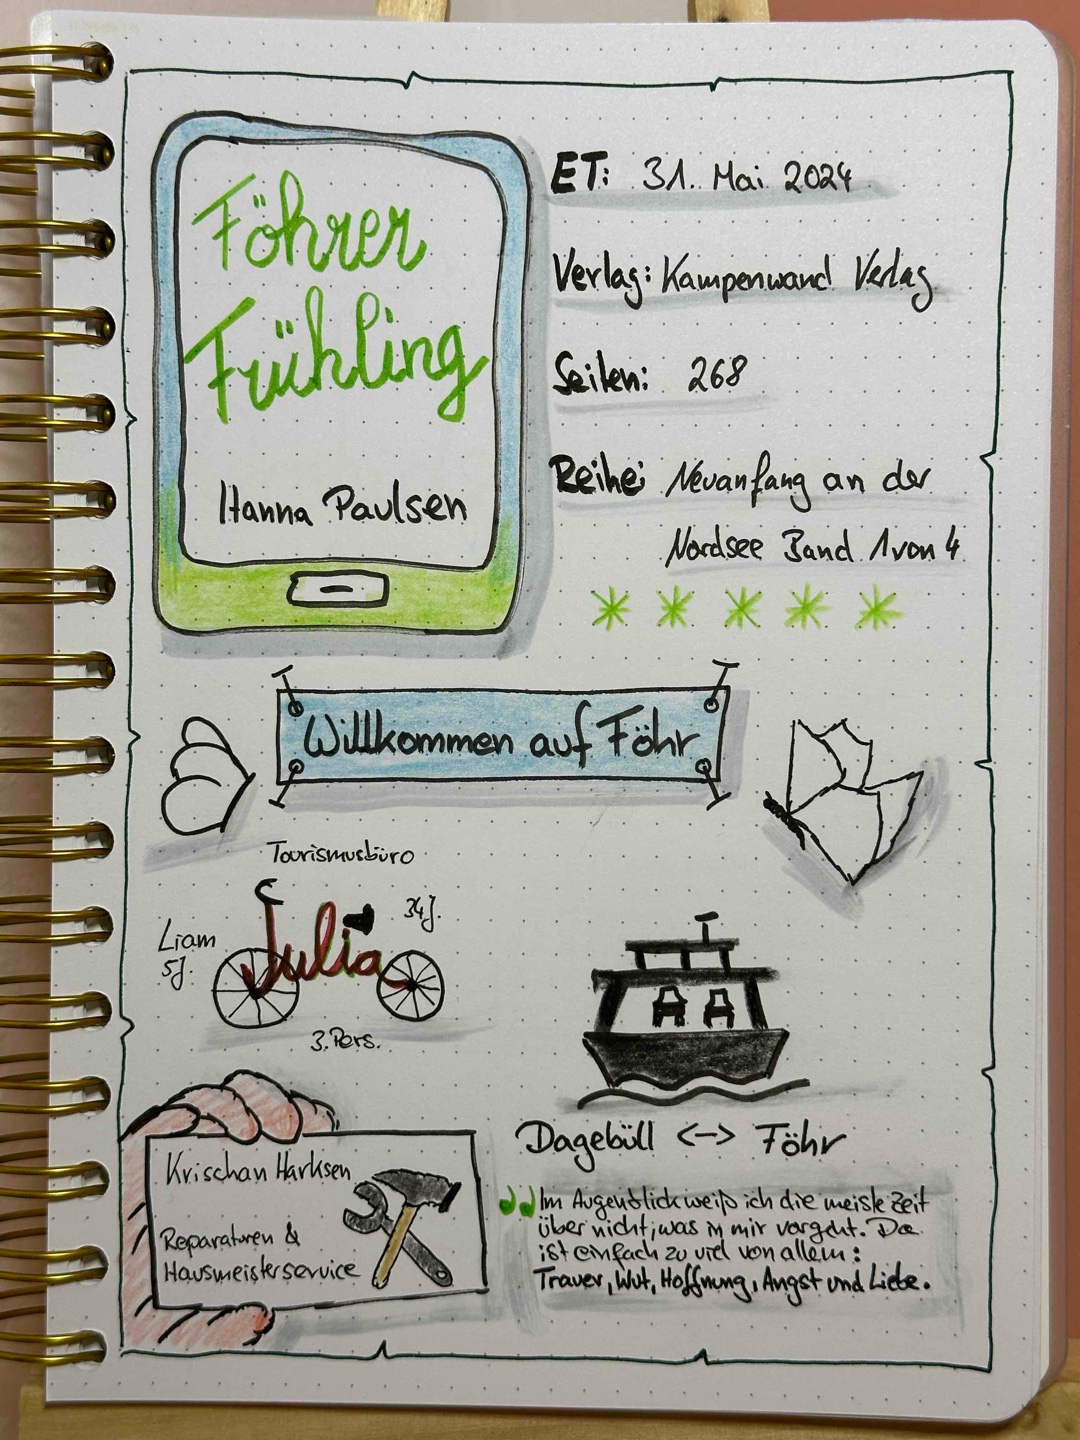 Föhrer
Frühling
Hanna Paulsen
ET: 31. Mai 2024
Verlag: Kampenwand Verlag
Seiten: 268
Reihe: Neuanfang an der
Nordsee Band 1 von 4
Willkommen auf Föhr
Tourismusbüro
Liam
5J.
Julia
34J.
3. Pers.
Dagebüll <--> Föhr
Krischan Harksen
Reparaturen &
Hausmeisterservice
Im Augenblick weiß ich die meiste Zeit
über nicht, was in mir vorgeht. Da
ist einfach zu viel von allem:
Trauer, Wut, Hoffnung, Angst und Liebe.